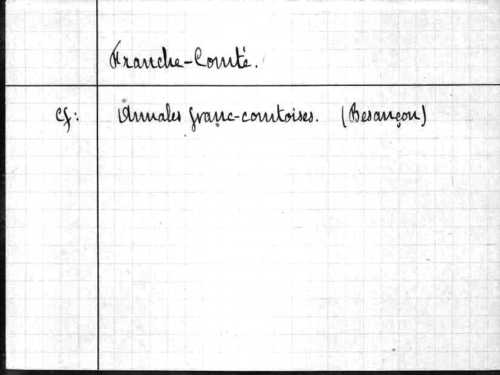 Franche-Comté.
cf: Annales franc-comtoises. (Besançon)